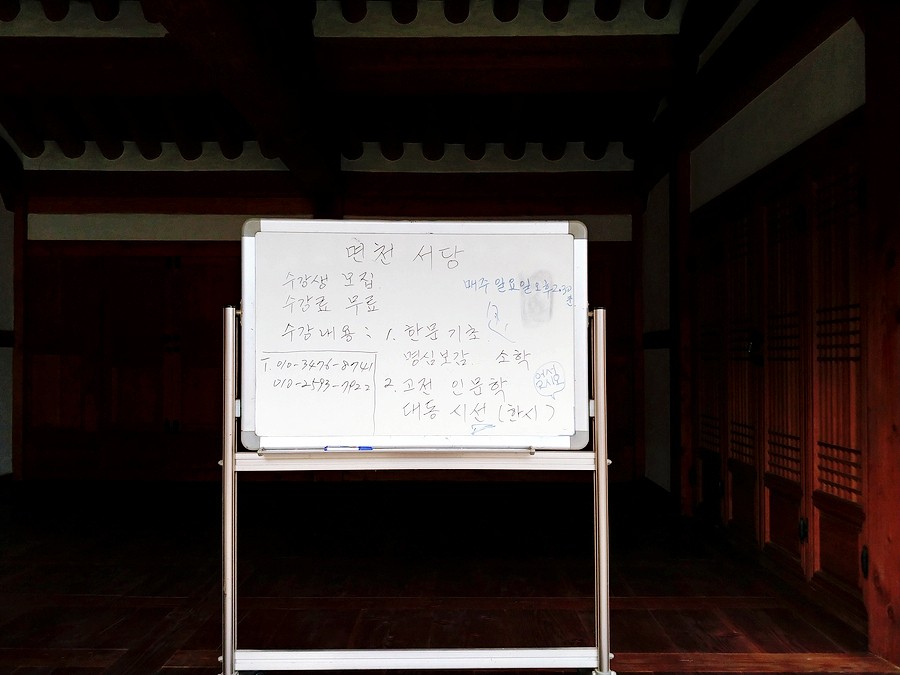 면천 서당
수강생 모집
매주 일요일 오후 2:30분
수강료 무료
수강내용 : 1. 한문 기초
명심보감. 소학
T. 010-3476-8741
010-2593-7922
2. 고전 인문학
대동 시선 (한시)
어서
오시오